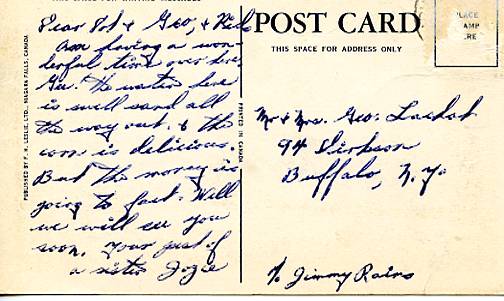 POST CARD
THIS SPACE FOR ADDRESS ONLY
PLACE
AMP
ERE
Dear & Geo, & Kids
Am having a won-
derful time over here
Geo. The water here
is swell sand all
the way out. & the
corn is delicious.
But the money is
going to fast. Well
we will see you
soon. Your just of
a sister Jozie
PUBLISHED BY F. H. LESLIE, LTD., NIAGARA FALLS, CANADA
PRINTED IN CANADA
Mr & Mrs. Geo:
94
Buffalo, N.Y.
℅ Jimmy Rains